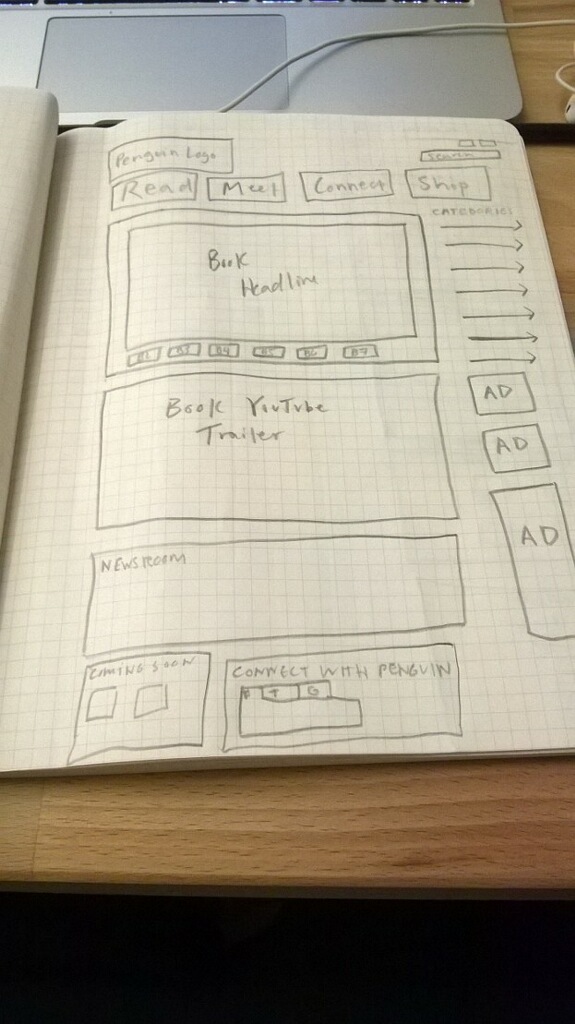 Penguin Logo
Search
Read Meet Connect Ship
CATEGORIES
Book
Headline
B3 B4 B5 B6 B7
Book YouTube
Trailer
AD
AD
AD
NEWSROOM
COMING SOON
CONNECT WITH PENGUIN
T G